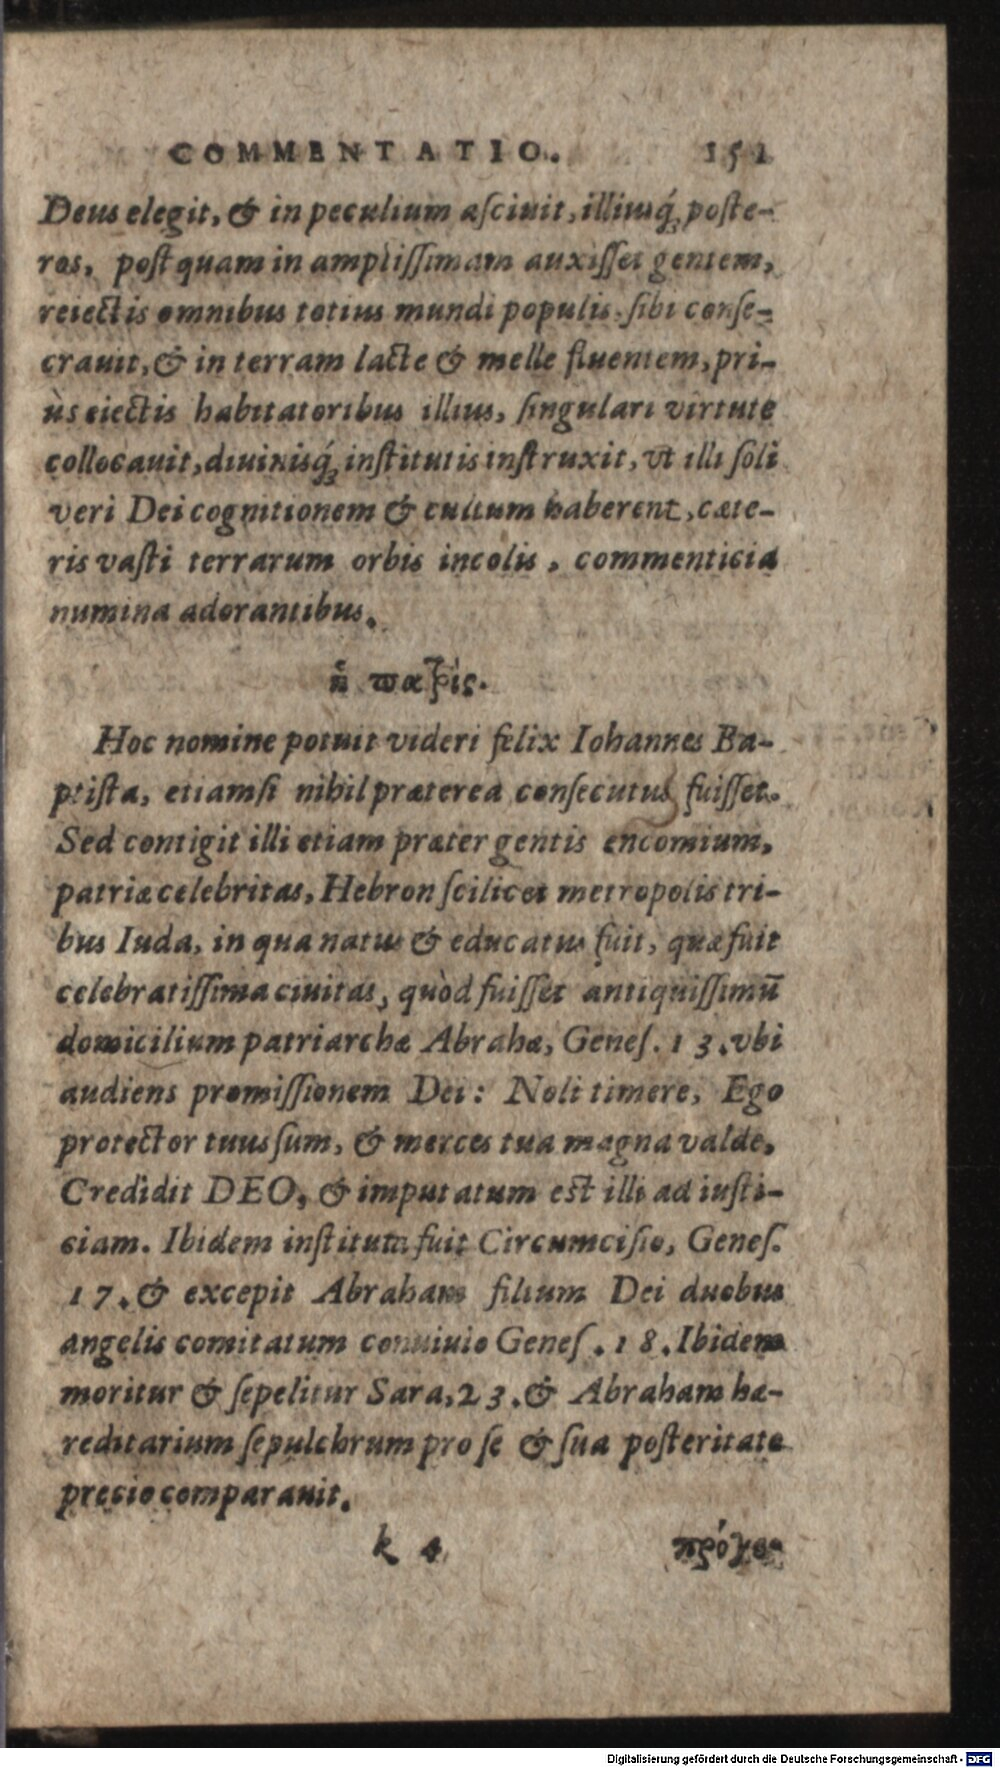 COMMENTATIO. 151
Deus elegit, & in peculium asciuit, illiusq́; poste-
ros, postquam in amplissimam auxisset gentem,
reiectis omnibus totius mundi populis, sibi conse-
crauit, & in terram lacte & melle fluentem, pri-
ùs eiectis habitatoribus illius, singulari virtute
collocauit, diuinisq́; institutis instruxit, vt illi soli
veri Dei cognitionem & cultum haberent, cæte-
ris vasti terrarum orbis incolis, commenticia
numina adorantibus.
ἡ πατρίς.
Hoc nomine potuit videri felix Iohannes Ba-
ptista, etiamsi nihil præterea consecutus fuisset.
Sed contigit illi etiam præter gentis encomium,
patriæ celebritas, Hebron scilicet metropolis tri-
bus Iuda, in qua natus & educatus fuit, quæ fuit
celebratissima ciuitas, quòd fuisset antiquissimũ
domicilium patriarchæ Abrahæ, Genes. 13. vbi
audiens promissionem Dei: Noli timere, Ego
protector tuus sum, & merces tua magna valde,
Credidit DEO, & imputatum est illi ad iusti-
ciam. Ibidem instituta fuit Circumcisio, Genes.
17. & excepit Abraham filium Dei duobus
angelis comitatum conuiuio Genes. 18. Ibidem
moritur & sepelitur Sara, 23. & Abraham hæ-
reditarium sepulchrum pro se & sua posteritate
precio comparauit.
k 4 πρόγο-
Digitalisierung gefördert durch die Deutsche Forschungsgemeinschaft - DFG